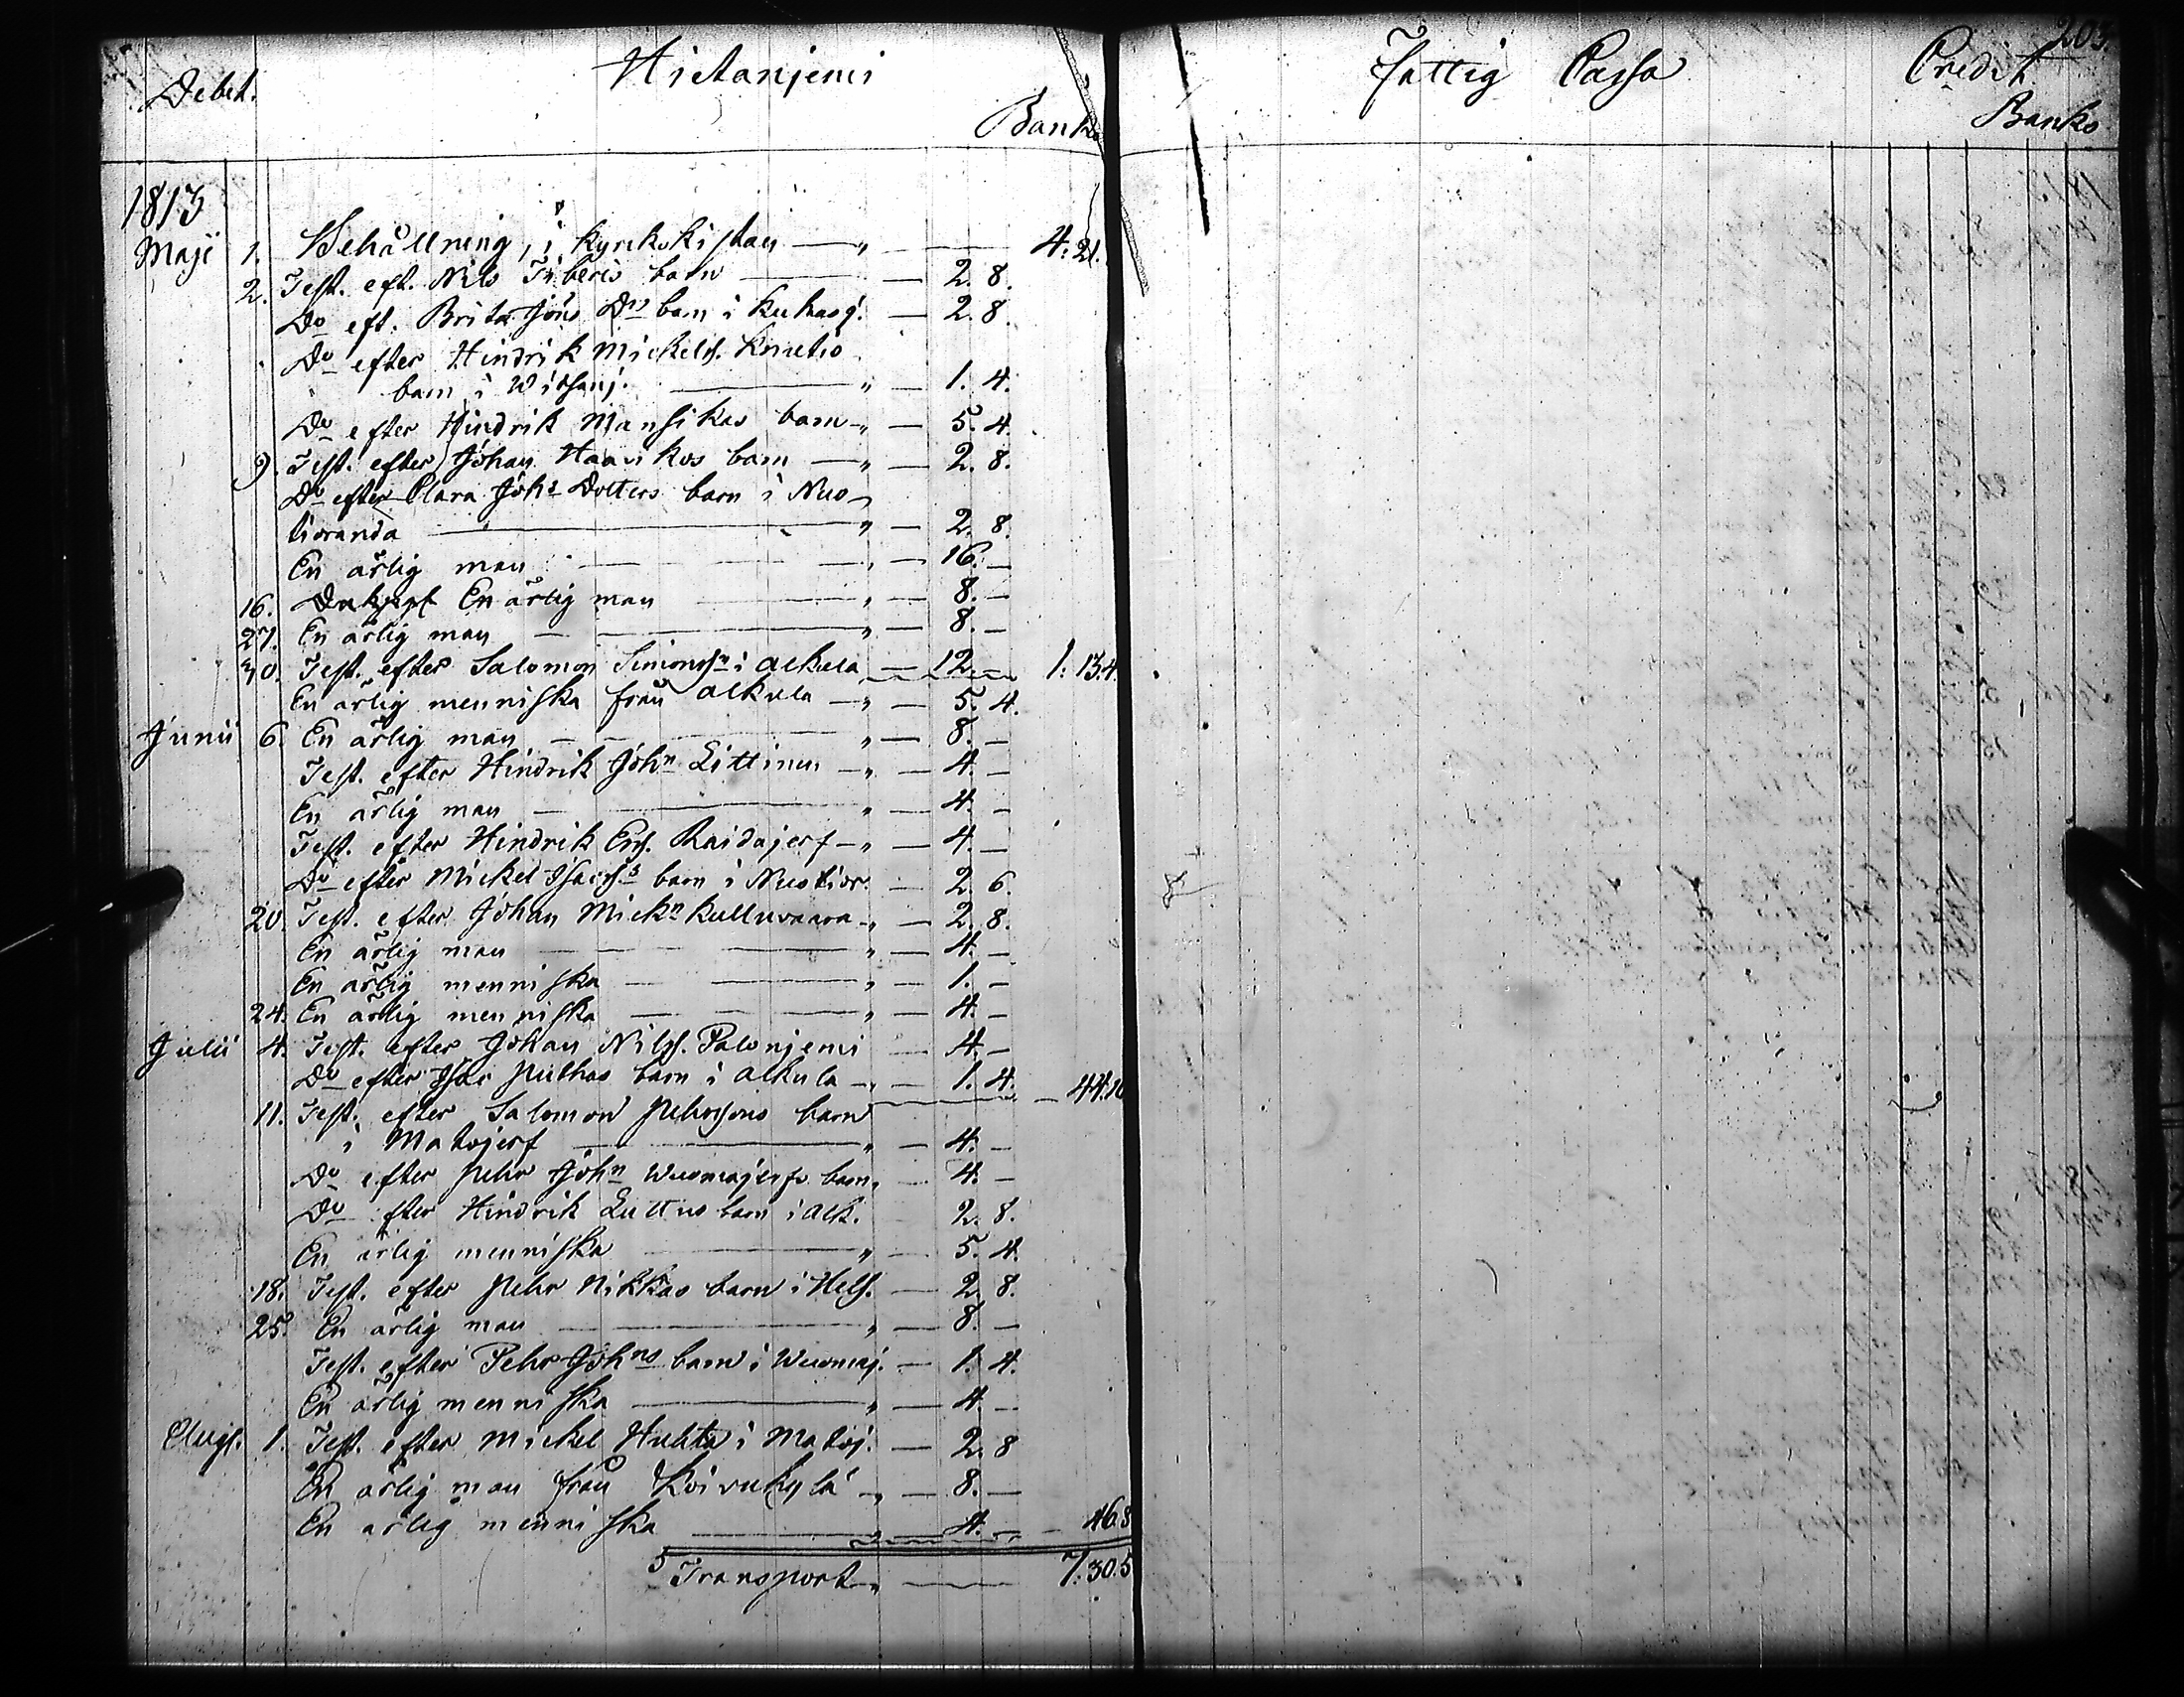 Debet. Hietaniemi
Banko
1813
Maji 1. Behållning, i Kyrkokistan — " — 4: 21.
2. Test. eft. Nils Tiberis barn — 2. 8.
Do eft. Brita Jöns Drs barn i Kukasj. — 2. 8.
Do efter Hindrik Mickels. Knetis
barn i Witsanj. — " — 1. 4.
Do efter Hindrik Mansikas barn — " — 5. 4.
9. Test. efter Johan Haavikos barn — " — 2. 8.
Do efter Clara Johs Dotters barn i Nuo-
tioranda — " — 2. 8.
En ärlig man — " — 16. —
16. En ärlig man — " — 8. —
27. En ärlig man — " — 8. —
30. Test. efter Salomon Simonssn i Alkula — 12. — 1: 13.4.
En ärlig menniska från Alkula — " — 5. 4.
Junii 6. En ärlig man — " — 8. —
Test. efter Hindrik John Littinen — " — 4. —
En ärlig man — " — 4. —
Test. efter Hindrik Ers. Raidajerf — " — 4. —
Do efter Mickel Isacss barn i Nuotior. — 2. 6.
20. Test. efter Johan Mickn Kulluvaara — " — 2. 8.
En ärlig man — " — 4. —
En ärlig menniska — " — 1. —
24. En ärlig menniska — " — 4. —
Julii 4. Test. efter Johan Nilss. Palonjemi — 4. —
Do efter Isac Pulkas barn i Alkula — " — 1. 4. — 44.10
11. Test. efter Salomon Pehrssons barn
i Matojerf — " — 4. —
Do efter Pehr John Wuomajerfs barn " — 4. —
Do efter Hindrik Luttus barn i Alk. 2. 8.
En ärlig menniska — " — 5. 4.
18. Test. efter Pehr Nikkas barn i Hels. — 2. 8.
25. En ärlig man — " — 8. —
Test. efter Pehr Johns barn i Wuomaj. — 1. 4.
En ärlig menniska — " — 4. —
Augs. 1. Test. efter Mickel Huhta i Matoj. — 2. 8
En ärlig man från Koivukylä — " — 8. —
En ärlig menniska — " — 4. — 46.8
Transport " — 7: 30.5
203.
Fattig Cassa Credit
Banko